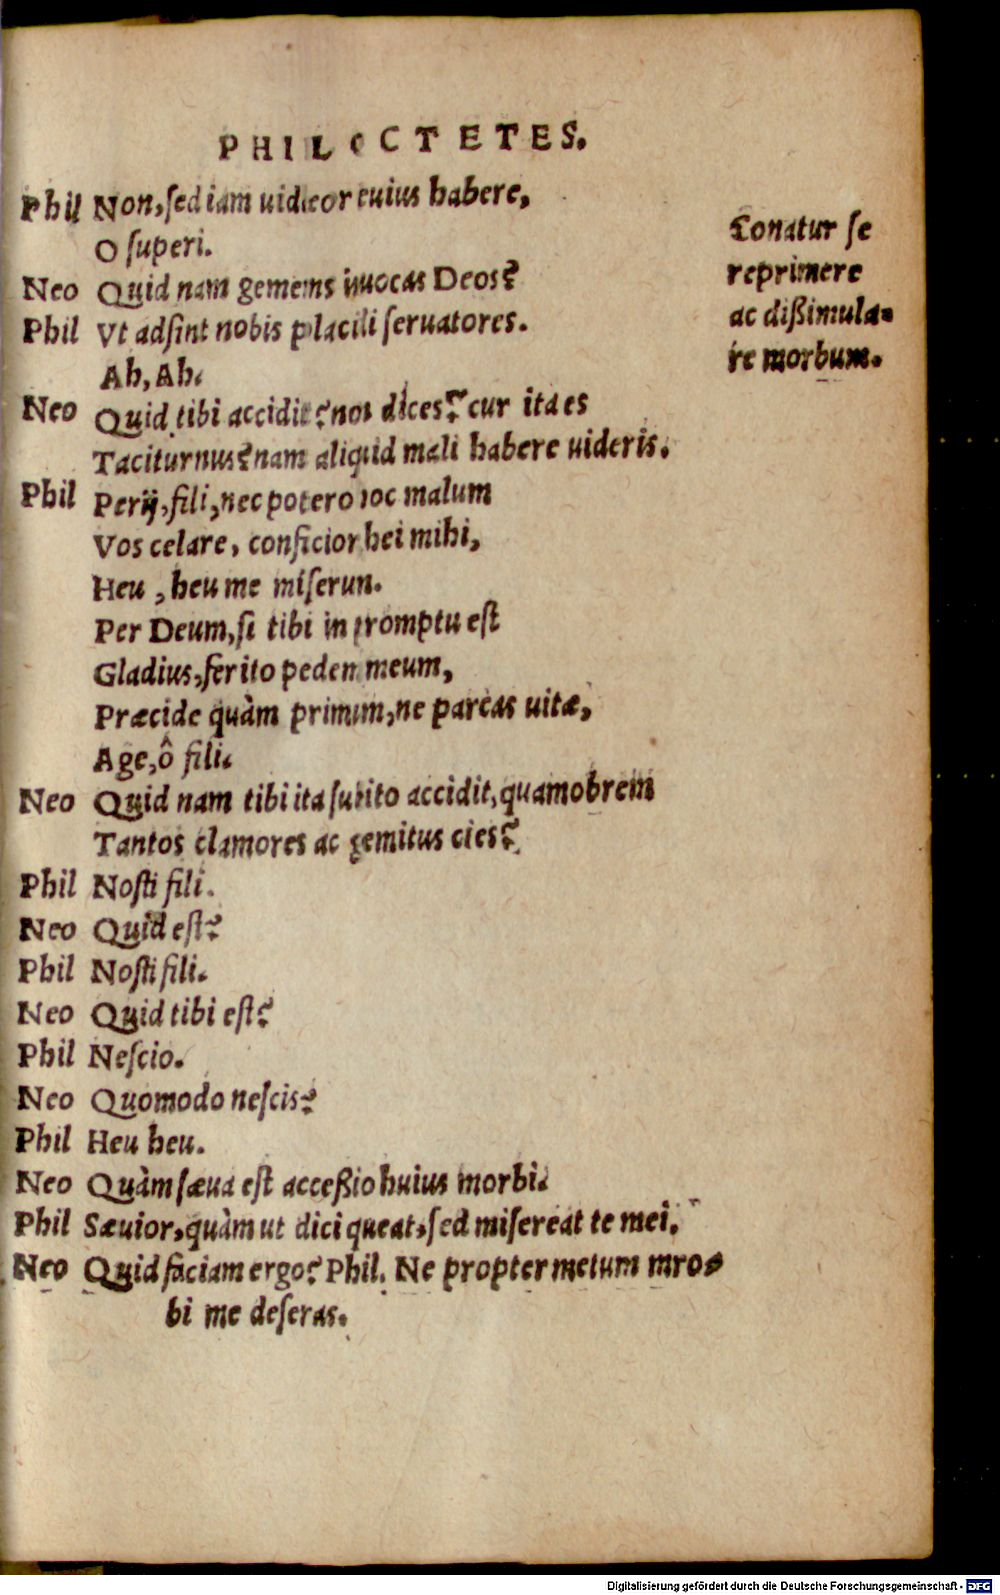 PHILOCTETES.
Phil Non, sed iam uideor leuius habere,
O superi.
Neo Quid nam gemens inuocas Deos?
Phil Vt adsint nobis placidi seruatores.
Ah, Ah.
Neo Quid tibi accidit? non dices? cur ita es
Taciturnus? nam aliquid mali habere uideris.
Phil Perij, fili, nec potero hoc malum
Vos celare, conficior hei mihi,
Heu, heu me miserun.
Per Deum, si tibi in promptu est
Gladius, ferito pedem meum,
Præcide quàm primum, ne parcas uitæ,
Age, ô fili.
Neo Quid nam tibi ita subito accidit, quamobrem
Tantos clamores ac gemitus cies?
Phil Nosti fili.
Neo Quid est?
Phil Nosti fili.
Neo Quid tibi est?
Phil Nescio.
Neo Quomodo nescis?
Phil Heu heu.
Neo Quàm sæua est accessio huius morbi.
Phil Sæuior, quàm ut dici queat, sed misereat te mei.
Neo Quid faciam ergo? Phil. Ne propter metum mro-
bi me deseras.
Conatur se
reprimere
ac dißimula-
re morbum.
Digitalisierung gefördert durch die Deutsche Forschungsgemeinschaft - DFG